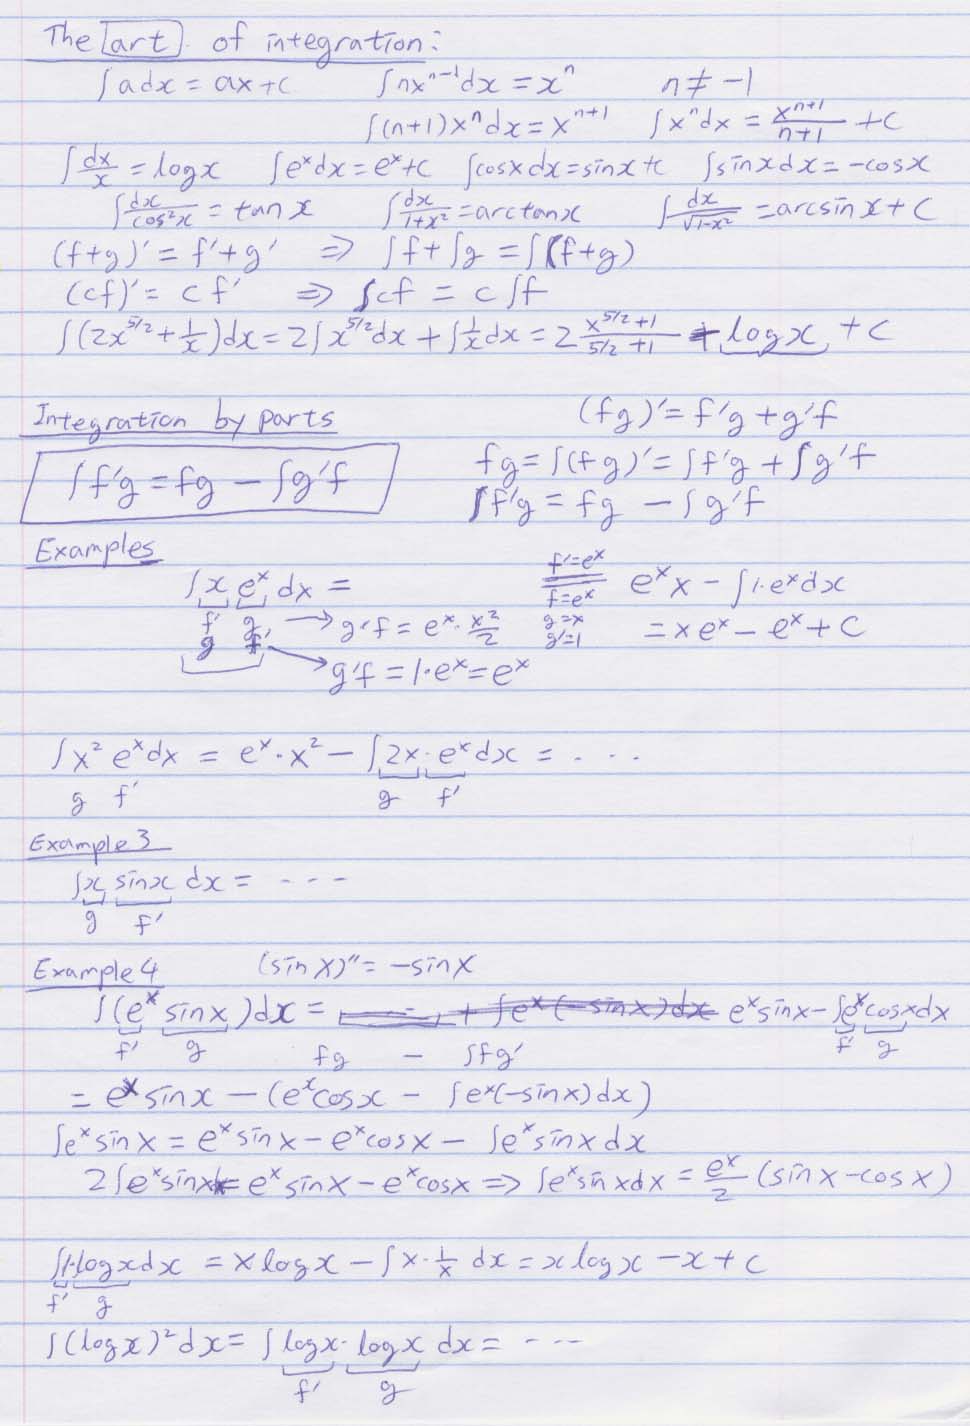 The art of integration:
∫adx = ax+c ∫nxⁿ⁻¹dx = xⁿ n ≠ -1
∫(n+1)xⁿdx = xⁿ⁺¹ ∫xⁿdx = xⁿ⁺¹/n+1 + C
∫dx/x = logx ∫eˣdx = eˣ+c ∫cosx dx = sinx+c ∫sinx dx = -cosx
∫dx/cos²x = tanx ∫dx/1+x² = arctanx ∫dx/√1-x² = arcsinx + C
(f+g)' = f'+g' ⇒ ∫f+∫g = ∫(f+g)
(cf)' = cf' ⇒ ∫cf = c∫f
∫(2x^5/2 + 1/x)dx = 2∫x^5/2 dx + ∫1/x dx = 2 x^5/2+1/5/2+1 + logx + C
Integration by parts (fg)' = f'g + g'f
∫f'g = fg - ∫g'f fg = ∫(fg)' = ∫f'g + ∫g'f
∫f'g = fg - ∫g'f
Examples
∫x eˣ dx = f'=eˣ f=eˣ eˣx - ∫1·eˣdx
f' g → g'f = eˣ·x²/2 g=x g'=1 = xeˣ - eˣ + C
g f' → g'f = 1·eˣ = eˣ
∫x² eˣdx = eˣ·x² - ∫2x·eˣdx = ...
g f' g f'
Example 3
∫x sinx dx = ----
g f'
Example 4 (sinx)'' = -sinx
∫(eˣ sinx)dx = + ∫eˣ(-sinx)dx eˣsinx - ∫eˣcosxdx
f' g fg - ∫fg' f' g
= eˣsinx - (eˣcosx - ∫eˣ(-sinx)dx)
∫eˣsinx = eˣsinx - eˣcosx - ∫eˣsinxdx
2∫eˣsinx = eˣsinx - eˣcosx ⇒ ∫eˣsinxdx = eˣ/2 (sinx-cosx)
∫1·logxdx = xlogx - ∫x·1/x dx = xlogx - x + c
f' g
∫(logx)²dx = ∫logx·logx dx = ----
f' g